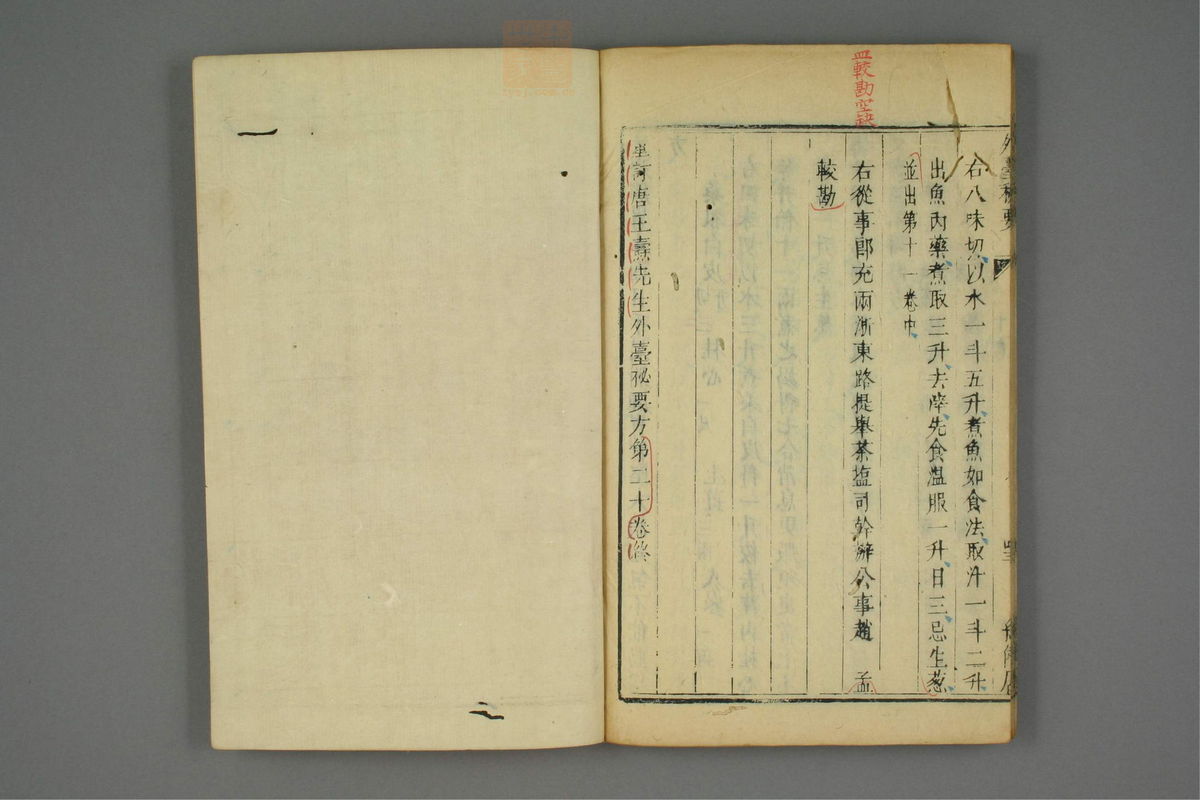 右八味切以水一斗五升煮魚如食法取汁一斗二升
出魚內藥煮取三升去滓先食温服一升日三忌生葱
並出第十一卷中
右從事郎充兩浙東路提舉茶塩司幹辦公事趙　孟
較勘
訂唐王燾先生外臺秘要方第二十卷終
孟較勘空缺